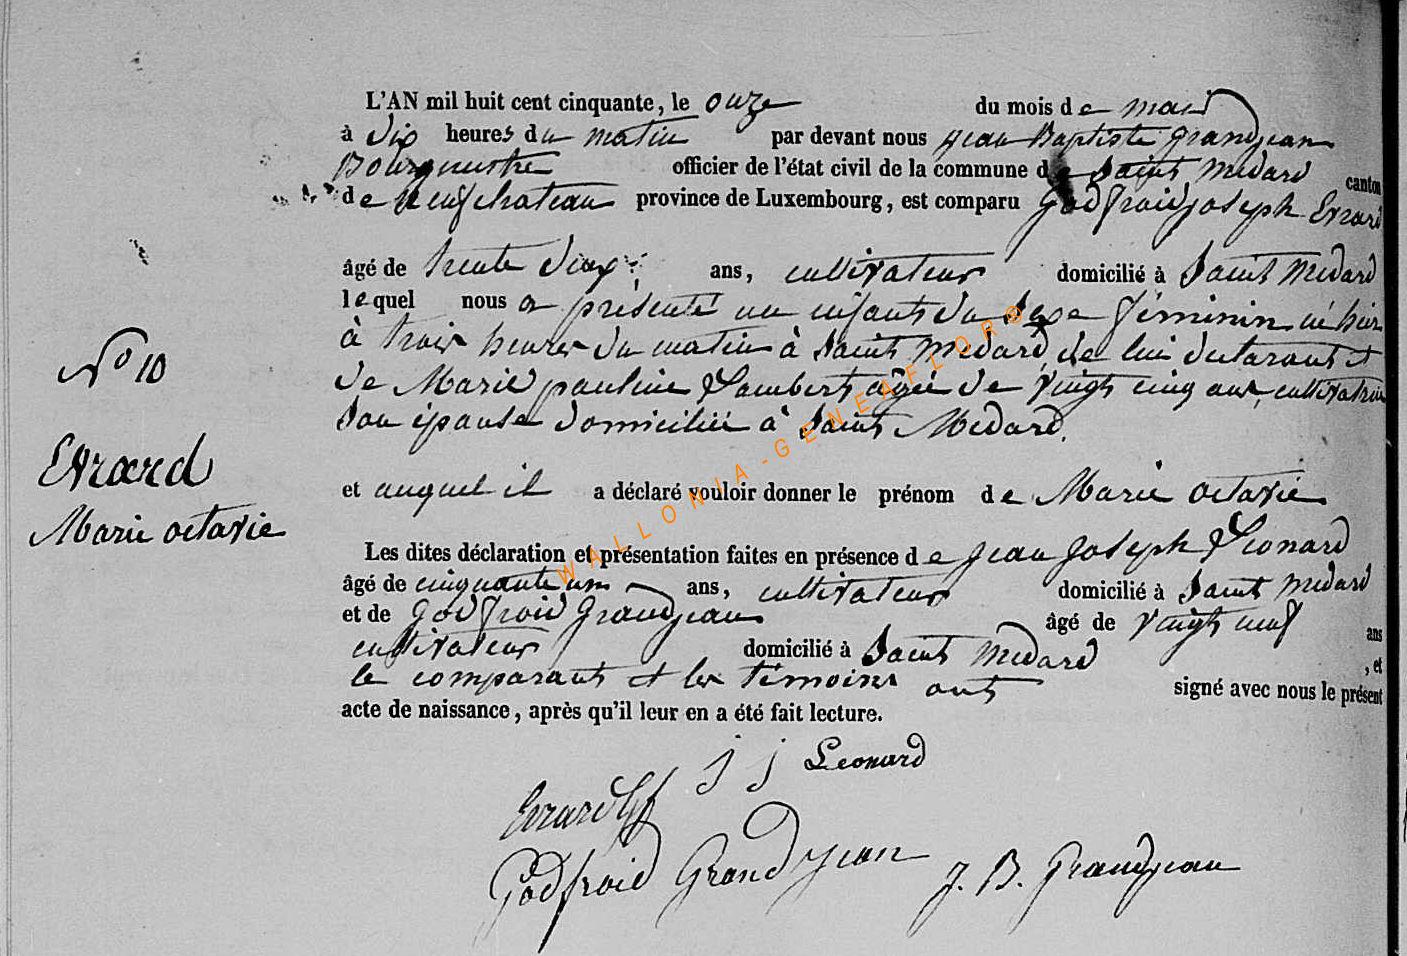 L'AN mil huit cent cinquante, le onze du mois de mai
à dix heures du matin par devant nous jean Baptiste grandjean
Bourgmestre officier de l'état civil de la commune de Saint Médard canton
de Neufchateau province de Luxembourg, est comparu Godfroid joseph Evrard
âgé de trente deux ans, cultivateur domicilié à Saint Médard
lequel nous a présenté un enfant du Sexe féminin né hier
à trois heures du matin à Saint Médard, de lui déclarant et
de Marie pauline Lambert âgée de vingt cinq ans, cultivatrice
Son épouse domiciliée à Saint Médard.
N° 10
Evrard
Marie octavie
et auquel il a déclaré vouloir donner le prénom de Marie octavie
Les dites déclaration et présentation faites en présence de jean joseph Léonard
âgé de cinquante un ans, cultivateur domicilié à Saint Médard
et de Godfroid Grandjean âgé de vingt neuf ans
cultivateur domicilié à Saint Médard , et
le comparant et les témoins ont signé avec nous le présent
acte de naissance, après qu'il leur en a été fait lecture.
J J Leonard
Evrard
Godfroid Grandjean J. B. Grandjean
WALLONIA-GENEAFLOR©